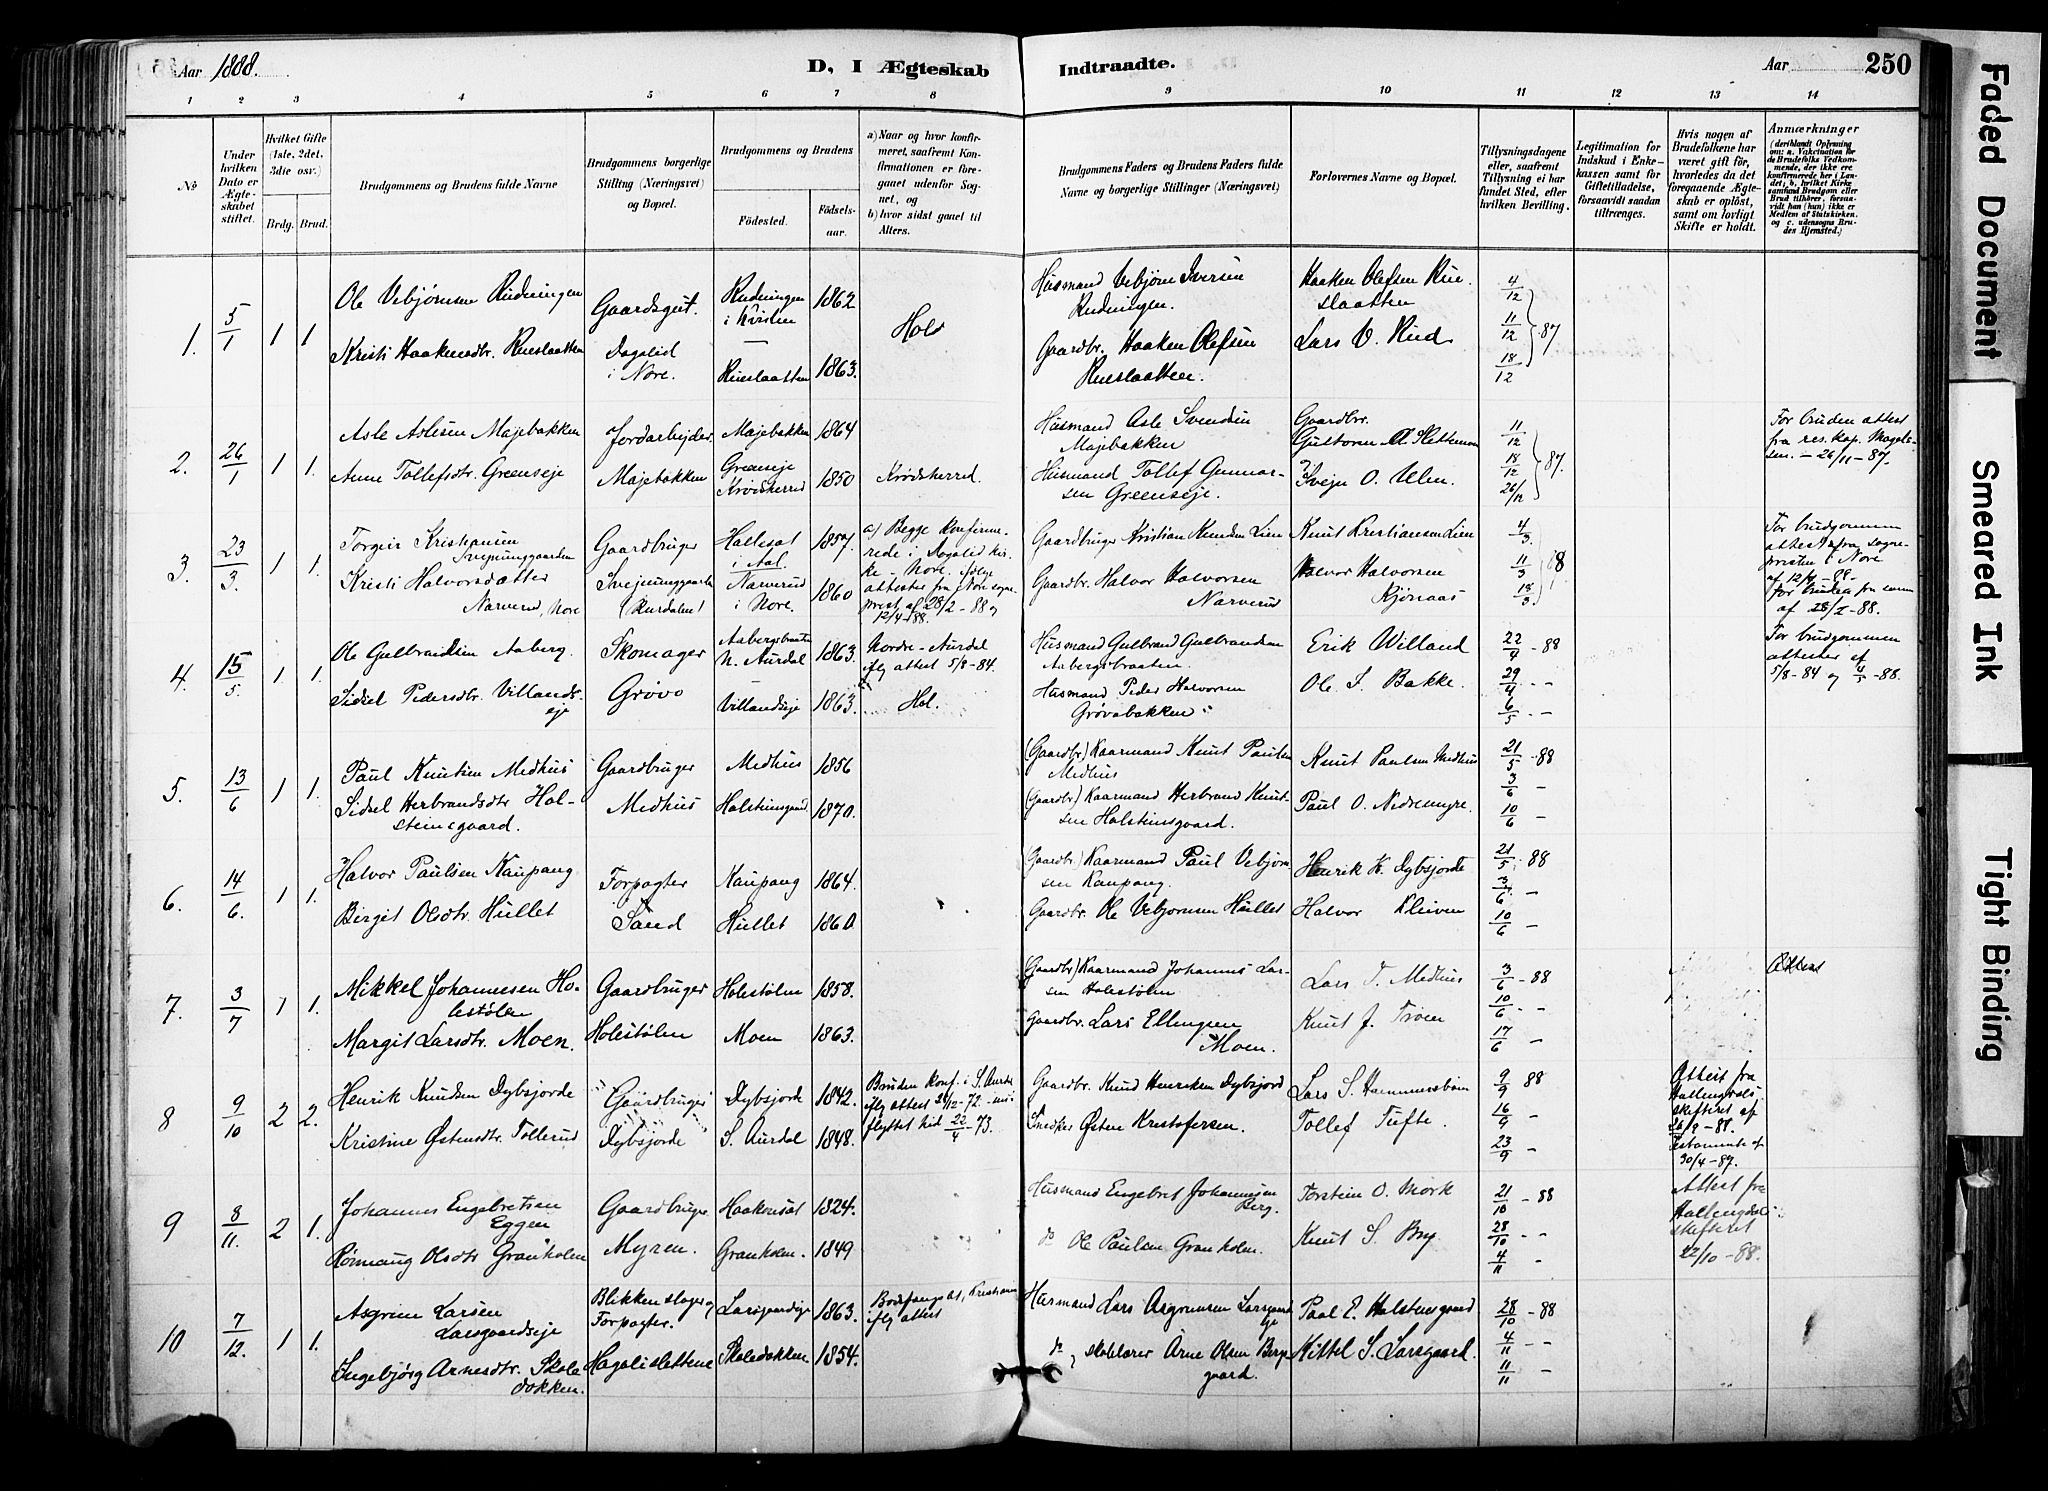 Aar 1888.
D, I Ægteskab
Indtraadte.
Aar
250
1 2 3 4 5 6 7 8 9 10 11 12 13 14
№
Under hvilken Dato er Ægteskabet stiftet.
Hvilket Gifte (1ste, 2det, 3die osv.)
Brdg. Brud.
Brudgommens og Brudens fulde Navne
Brudgommens borgerlige Stilling (Næringsvei) og Bopæl.
Brudgommens og Brudens
Fødested.
Fødselsaar.
a) Naar og hvor konfirmeret, saafremt Konfirmationen er foregaaet udenfor Sognet, og
b) hvor sidst gaaet til Alters.
Brudgommens Faders og Brudens Faders fulde Navne og borgerlige Stillinger (Næringsvei)
Forlovernes Navne og Bopæl.
Tillysningsdagene eller, saafremt Tillysning ei har fundet Sted, efter hvilken Bevilling.
Legitimation for Indskud i Enkekassen samt for Giftetilladelse, forsaavidt saadan tiltrænges.
Hvis nogen af Brudefolkene har været gift før, hvorledes da det foregaaende Ægteskab er opløst, samt om lovligt Skifte er holdt.
Anmærkninger (deriblandt Oplysning om: a. Vakcination for de Brudefolks Vedkommende, der ikke ere konfirmerede her i Landet; b. hvilket Kirkesamfund Brudgom eller Brud tilhører, forsaavidt han (hun) ikke er Medlem af Statskirken, og c. udensogns Brudes Hjemsted.)
1. 5/1 1 1
Ole Vebjørnsen Rudningen
Gaardsgut.
Rudningen
1862
Husmand Vebjørn Iversen
Rudningen
Haaken Olefsen Rueslaatten
4/12
Kristi Haakensdtr. Rueslaatten
Dagalid i Nore.
Rueslaatten
1863.
Hol
Gaardbr. Haaken Olefsen
Rueslaatten.
Lars O. Rud
11/12 87
18/12
2. 26/1 1 1.
Asle Aslesen Majebakken
Jordarbejder
Majebakken
1864
Husmand Asle Svendsen
Majebakken
Gaardbr.
11/12
For bruden attest fra res. kap. Magelssen. – 26/11 – 87.
Anne Tollefsdtr. Greenseje
Majebakken
Greenseje Krødsherred
1850
Krødsherred.
Husmand Tollef Gunnarsen Greenseje.
Svejn O. Ulen.
18/12 87.
26/12
3. 23/3 1 1.
Torgeir Kristiansen
Svejnunggaarden
Gaardbruger
Hallesat i Aal.
1857.
a) Begge konfirmerede i Dagalid kirke – Nore. ifølge attester fra Nore sogneprest af 28/2 – 88 og 12/4 – 88.
Gaardbruger Kristian Knudsen Lien
Knut Kristiansen Lien
4/3
For brudgommen attest fra sognepresten i Nore af 12/4 – 88. –
for bruden fra samme af 28/2 – 88.
Kristi Halvorsdatter
Narverud, Nore
Svejnunggaarden
Narverud i Nore.
1860
Gaardbr. Halvor Halvorsen
Narverud
Halvor Halvorsen
Kjønaas
11/3 88
18/3
4. 15/5 1 1.
Ole Gulbrandsen Aaberg.
Skomager
Aabergsbraaten
N. Aurdal
1863.
Nordre – Aurdal
iflg attest 5/8 – 84.
Husmand Gulbrand Gulbrandsen
Aabergsbraaten.
Erik Willand
22/4 – 88
For brudgommen attester af 5/8 – 84 og 4/5 – 88.
Sidsel Pedersdtr. Villandseje
Grøvo
Villandseje
1863.
Hol.
Husmand Peder Halvorsen
Grøvobakken
Ole S. Bakke.
29/4 . –
6/5 . –
5. 13/6 1 1.
Paul Knutsen Medhus
Gaardbruger
Medhus
1856
(Gaardbr.) Kaarmand Knut Paulsen
Medhus
Knut Paulsen Medhus
21/5 – 88
3/6 –
Sidsel Herbrandsdtr Holsteinsgaard.
Medhus
Holsteinsgaard
1870.
(Gaardbr.) Kaarmand Herbrand Knutsen Holsteinsgaard.
Paul O. Nedremyre.
10/6 –
6. 14/6. 1 1.
Halvor Paulsen Kaupang
Forpagter
Kaupang
1864.
(Gaardbr.) Kaarmand Paul Vebjørnsen Kaupang.
Henrik K. Dybsjorde
21/5 . 88
3/6 –
Birgit Olsdtr. Hullet
Sand
Hullet
1860.
Gaardbr. Ole Vebjørnsen Hullet
Halvor Kleiven
10/6 –
7. 3/7 1 1.
Mikkel Johannesen Holestølen
Gaardbruger
Holestølen
1858.
(Gaardbr.) Kaarmand Johannes Larsen Holestølen
Lars T. Medhus
3/6 – 88
Attest
10/6 . –
Margit Larsdtr. Moen.
Holestølen
Moen
1863.
Gaardbr. Lars Ellingsen
Moen.
Knut J. Troen
17/6 –
8 9/10 2 2.
Henrik Knudsen Dybsjorde
Gaardbruger
Dybsjorde
1842.
Bruden konf. i S. Aurdal iflg attest
flyttet hid 22/4 – 73.
Gaardbr. Knud Henriksen Dybsjord
Lars S. Hammersbøen
9/9 88
Attest fra Hallingdals skifteret af 26/9 – 88.
Testamente af 30/4 – 87.
Kristine Østensdtr. Tollerud
Dybsjorde
S. Aurdal
1848.
Snedker Østen Kristofersen.
Tollef Tufte.
16/9 –
23/9 –
9 8/11. 2 1.
Johannes Engebretsen
Eggen
Gaardbruger
Haakonsat
1824.
Husmand Engebret Johannesen
Berg.
Torstein O. Mork
21/10 – 88
Attest fra Hallingdals skifteret 22/10 – 88.
Rønnaug Olsdtr Granholen
Myren.
Granholen.
1849
do Ole Paulsen Granholen.
Knut S. Bry
28/10 . –
4/11 –
10 7/12. 1 1.
Asgrim Larsen
Larsgaardseje
Blikkenslager og Forpagter.
Larsgaardseje
1863.
iflg attest
Husmand Lars Asgrimsen Larsgaardseje
Paal E. Holsteinsgaard
28/10 – 88
4/11 – –
Ingebjørg Arnesdtr. Skoledokken.
Hagalislettene
Skoledokken
1854.
do og skolelærer Arne Olsen Berggaard.
Kittel S. Larsgaard.
11/11 –
Faded Document
Smeared Ink
Tight Binding